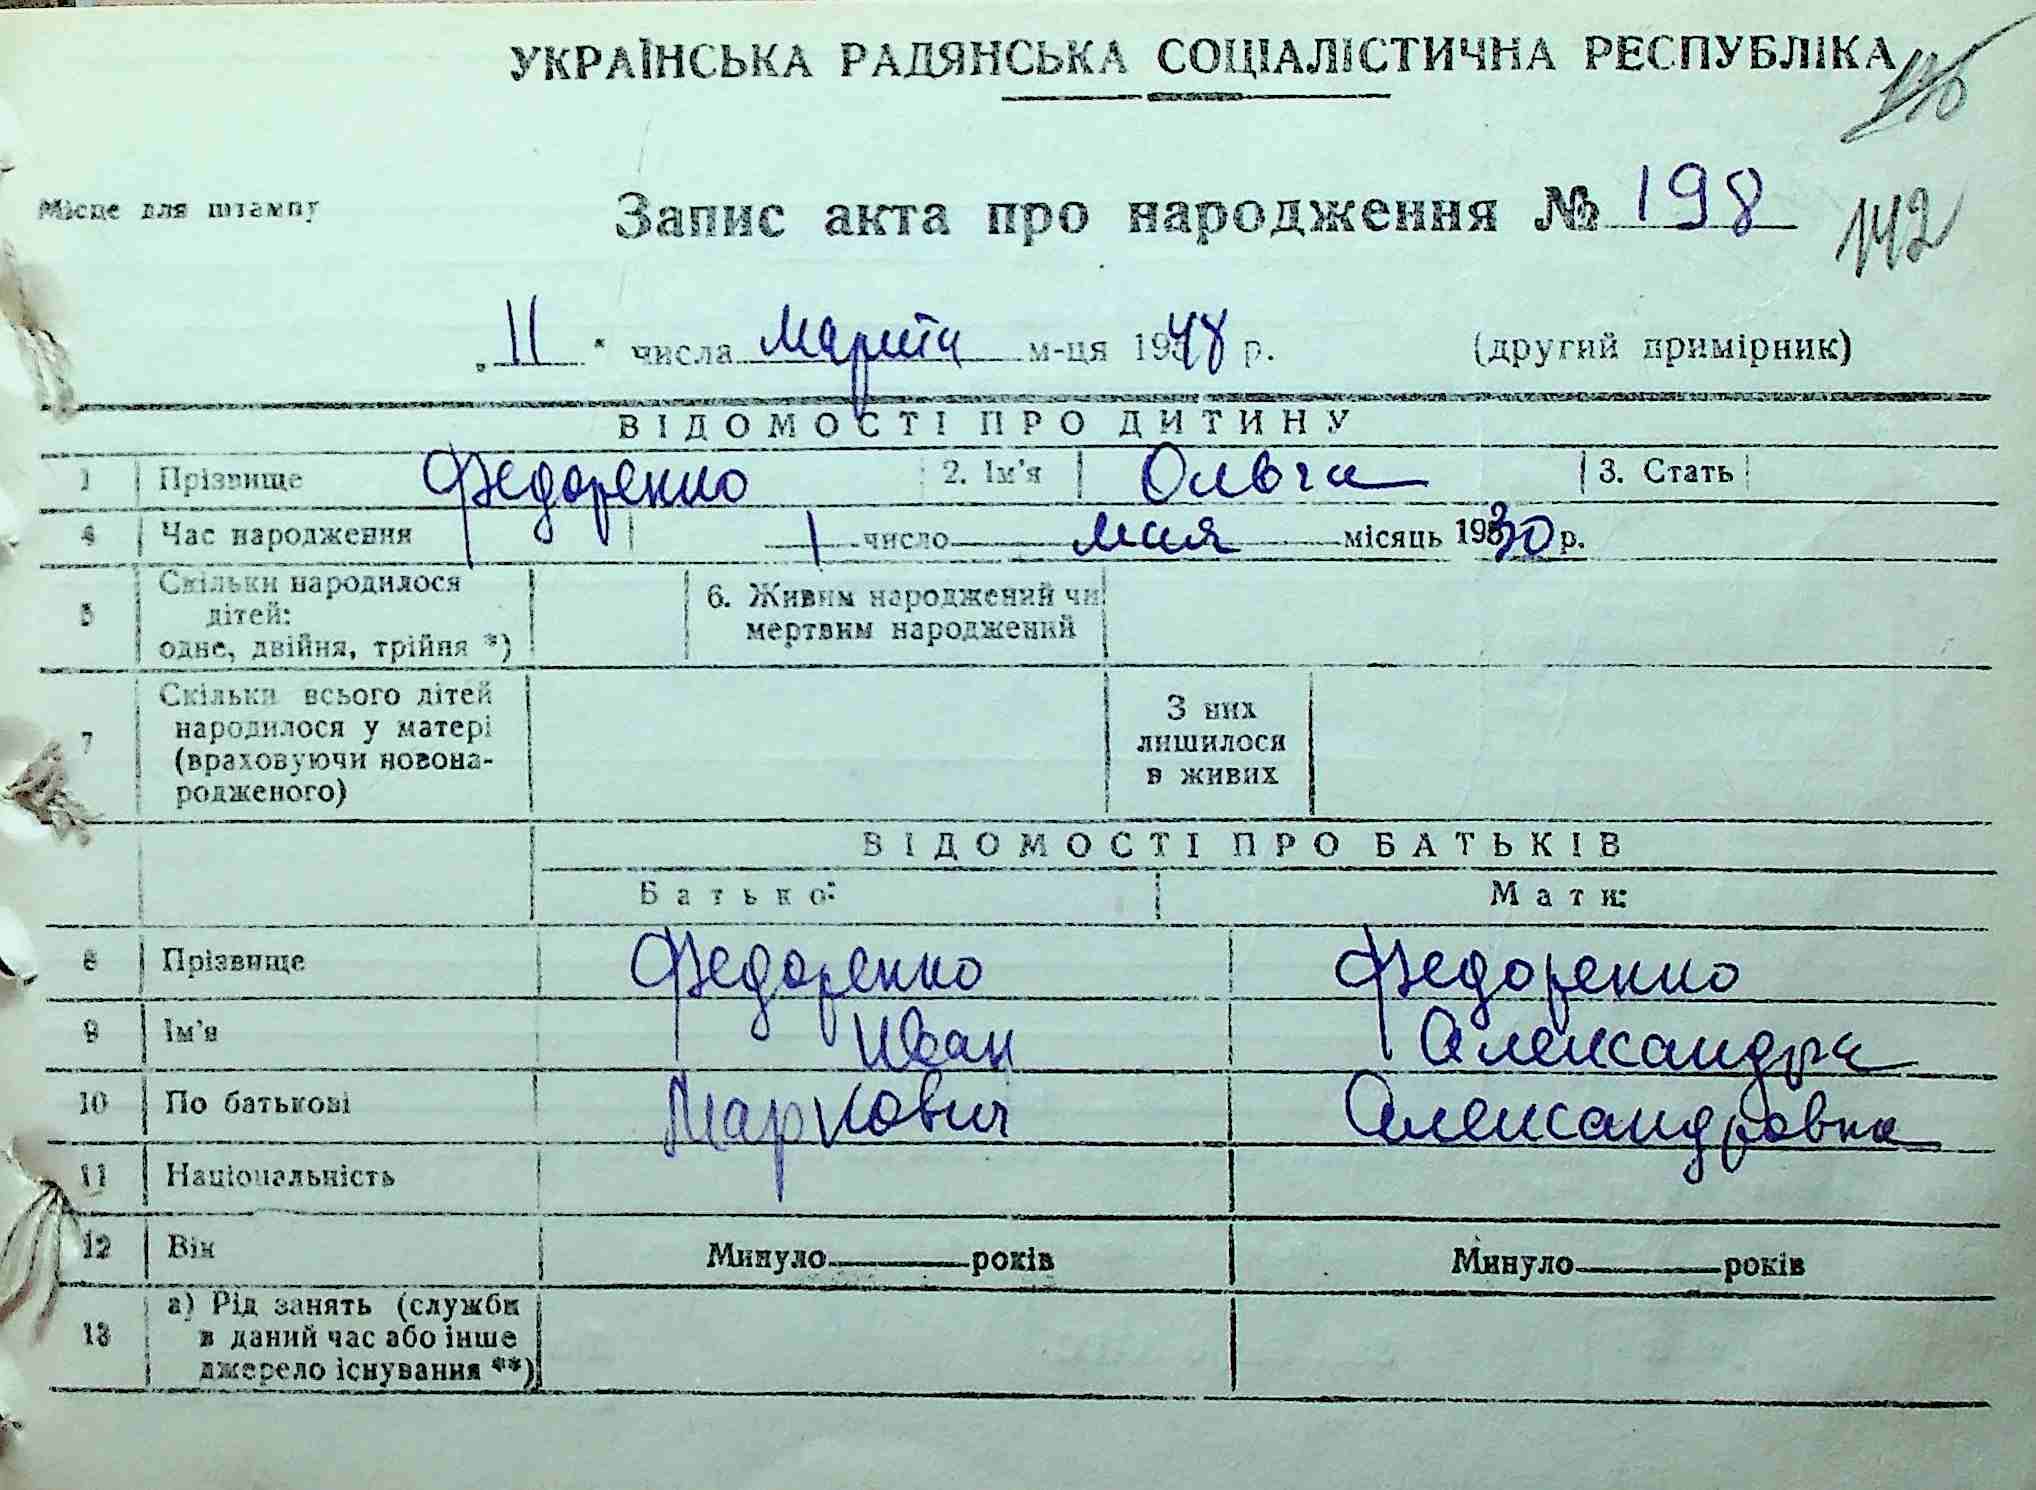 УКРАЇНСЬКА РАДЯНСЬКА СОЦІАЛІСТИЧНА РЕСПУБЛІКА
Місце для штампу
Запис акта про народження № 198
142
„11" числа Марта м-ця 1948 р. (другий примірник)
ВІДОМОСТІ ПРО ДИТИНУ
1 Прізвище Федоренко 2. Ім'я Ольга 3. Стать
4 Час народження 1 число мая місяць 1930 р.
5 Скільки народилося дітей: одне, двійня, трійня *) 6. Живим народжений чи мертвим народжений
7 Скільки всього дітей народилося у матері (враховуючи новонародженого) З них лишилося в живих
ВІДОМОСТІ ПРО БАТЬКІВ
Батько: Мати:
8 Прізвище Федоренко Федоренко
9 Ім'я Иван Александра
10 По батькові Маркович Александровна
11 Національність
12 Вік Минуло років Минуло років
13 а) Рід занять (служби в даний час або інше джерело існування **)